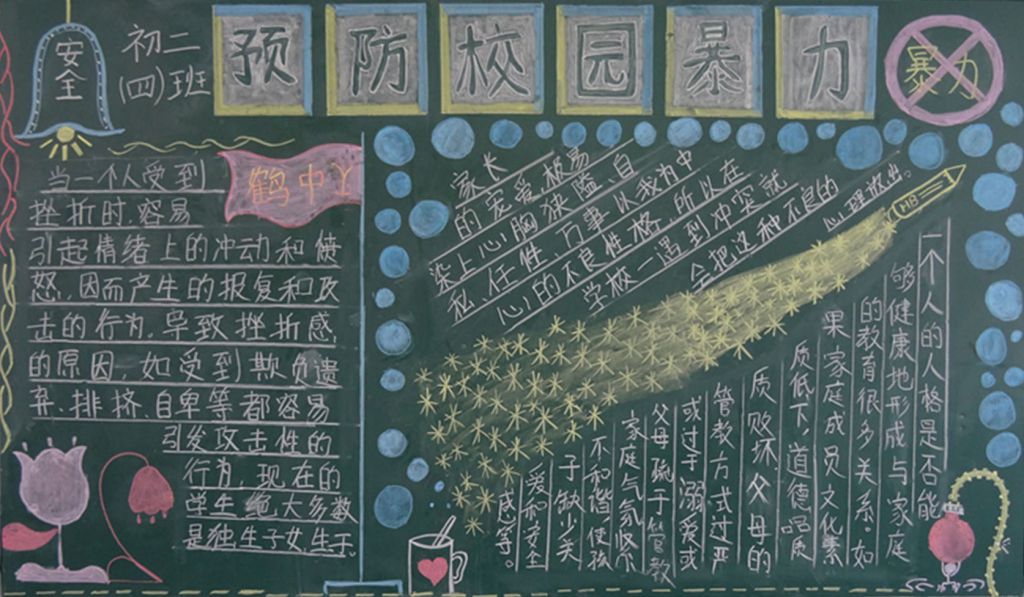 安全
初二
(四)班
预防校园暴力
暴力
鹤中丫
当一个人受到
挫折时,容易
引起情绪上的冲动和愤
怒,因而产生的报复和攻
击的行为.导致挫折感
的原因,如受到欺负遗
弃、排挤、自卑等都容易
引发攻击性的
行为,现在的
学生绝大多数
是独生子女,生于
家长
的宠爱,极易
染上心胸狭隘、自
私、任性、万事以我为中
心的不良性格,所以在
学校一遇到冲突就
会把这种不良的
心理放出。
HB
一个人的人格是否能
够健康地形成与家庭
的教育很多关系。如
果家庭成员文化素
质低下、道德品质
质败坏、父母的
管教方式过严
或过于溺爱或
父母疏于管教
家庭气氛
不和谐使孩
子缺少关
爱和安全
感等。